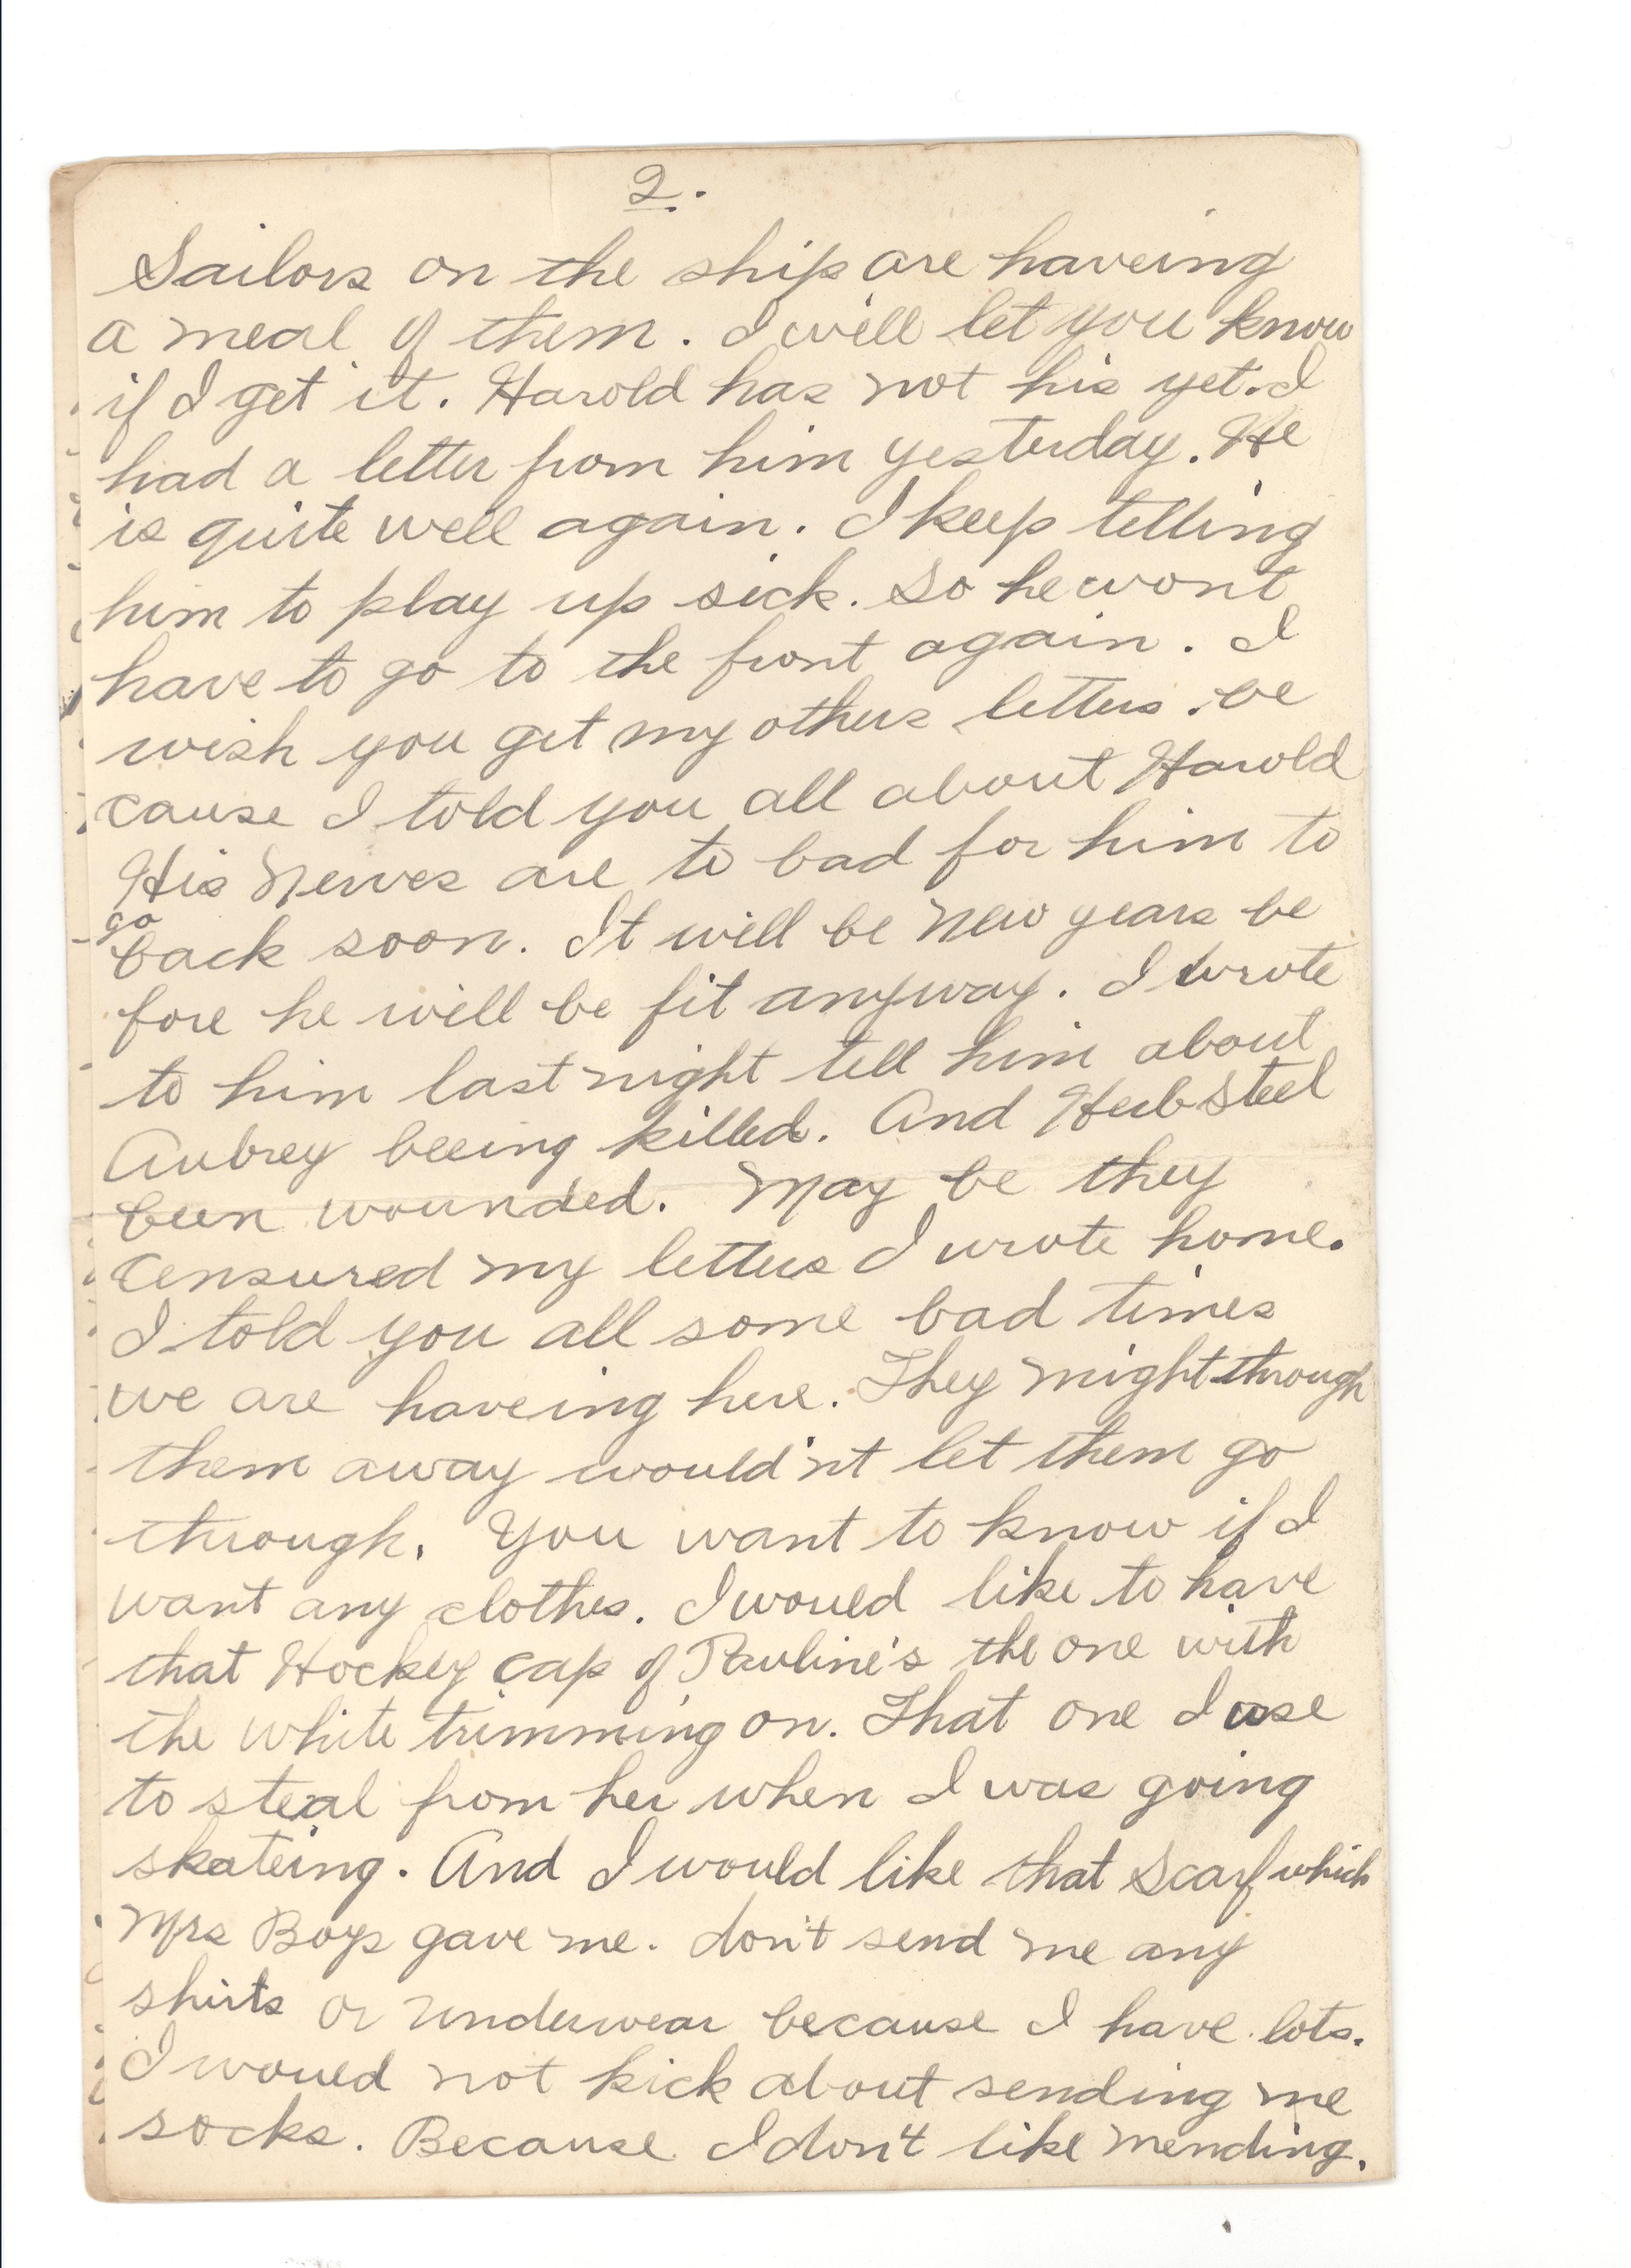 2.
Sailors on the ship are haveing
a meal of them. I will let you know
if I get it. Harold has not his yet. I
had a letter from him yesterday. He
is quite well again. I keep telling
him to play up sick. So he wont
have to go to the front again. I
wish you get my others letters. be
cause I told you all about Harold
His Nerves are to bad for him to
go
back soon. It will be New years be
fore he will be fit anyway. I wrote
to him last night tell him about
Aubrey beeing killed. And Herb Steel
been wounded. May be they
Censured my letters I wrote home.
I told you all some bad times
we are haveing here. They might through
them away would'nt let them go
through. You want to know if I
want any clothes. I would like to have
that Hockey cap of Pauline's the one with
the white trimming on. That one I use
to steal from her when I was going
skateing. And I would like that Scarf which
Mrs Boys gave me. don't send me any
shirts or underwear because I have lots.
I would not kick about sending me
socks. Because I don't like mending.